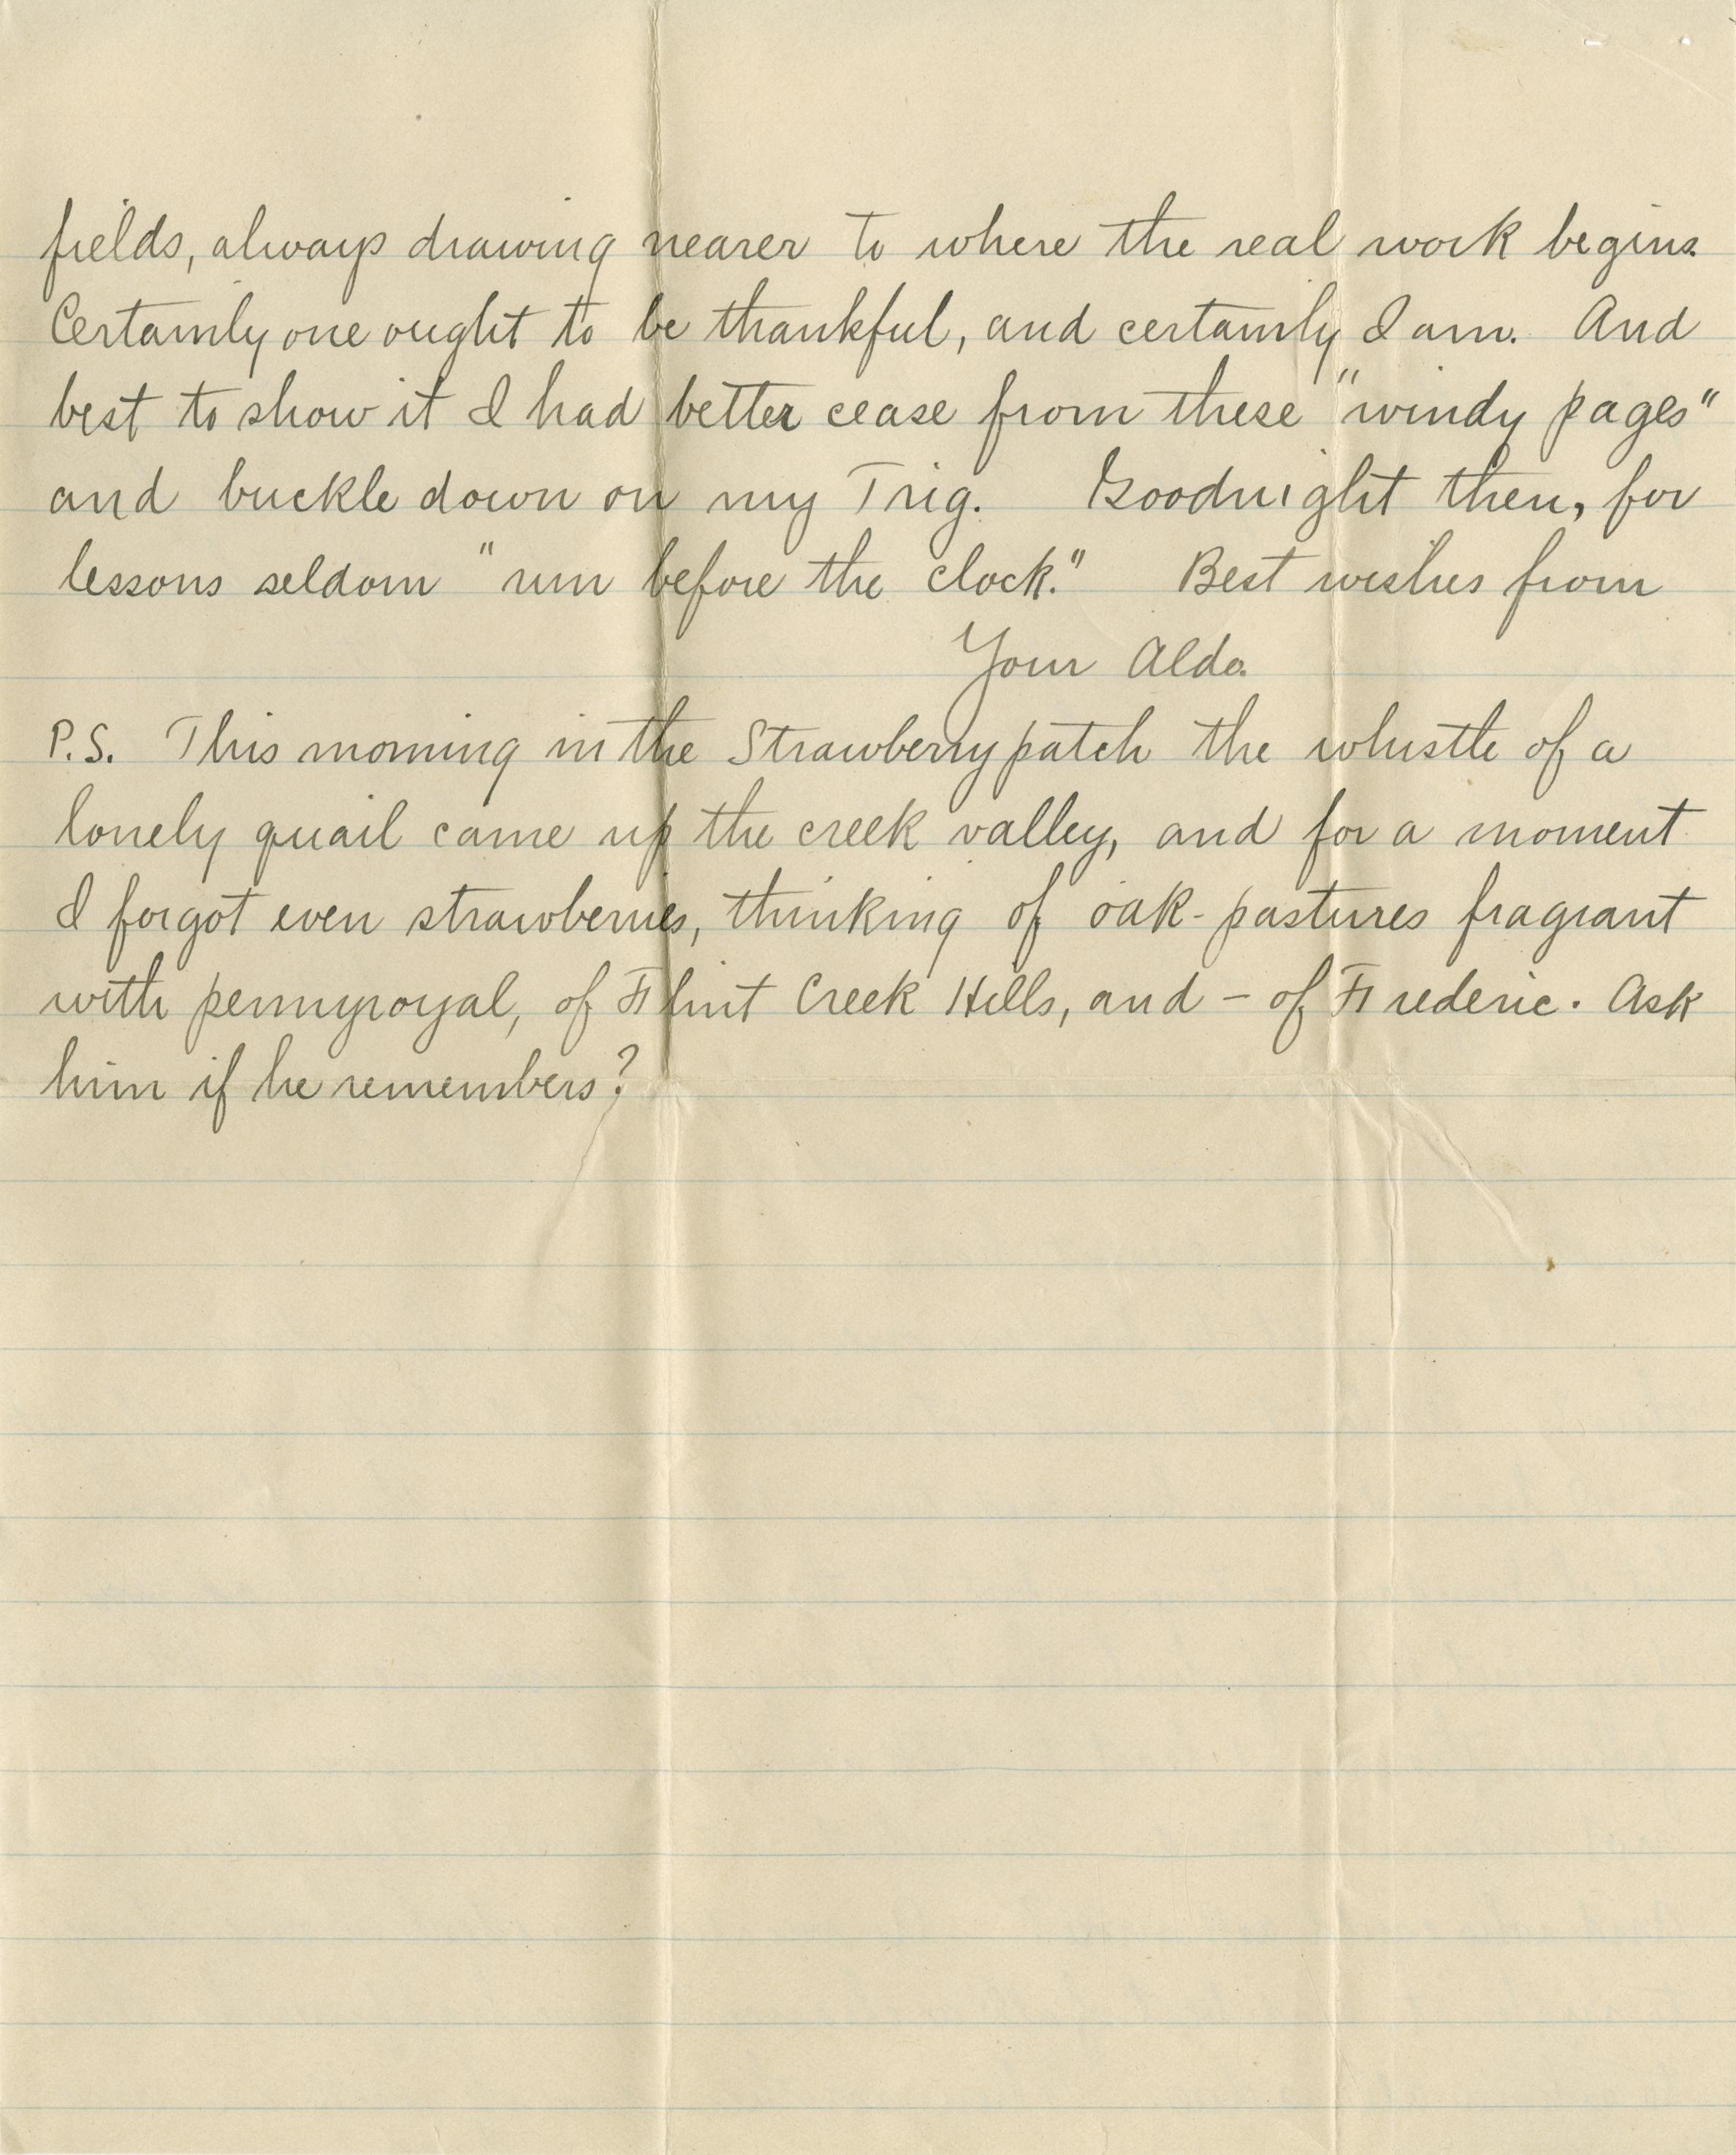 fields, always drawing nearer to where the real work begins.
Certainly one ought to be thankful, and certainly I am. And
best to show it I had better cease from these "windy pages"
and buckle down on my Trig. Goodnight then, for
lessons seldom "run before the clock." Best wishes from
Your Aldo.
P.S. This morning in the Strawberry patch the whistle of a
lonely quail came up the creek valley, and for a moment
I forgot even strawberries, thinking of oak-pastures fragrant
with pennyroyal, of Flint Creek Hills, and – of Frederic. Ask
him if he remembers?